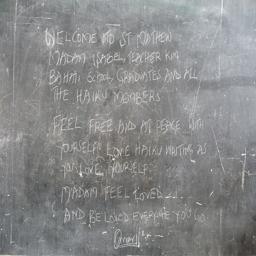 WELCOME TO ST MATTHEW
MADAM ISABEL, TEACHER KIM
BAHATI SCHOOL GRADUATES AND ALL
THE HAIKU MEMBERS
FEEL FREE AND AT PEACE WITH
YOURSELF LOVE HAIKU WRITING AS
YOU LOVE YOURSELF
MADAM FEEL LOVED
AND BE LOVED EVERYTIME YOU GO